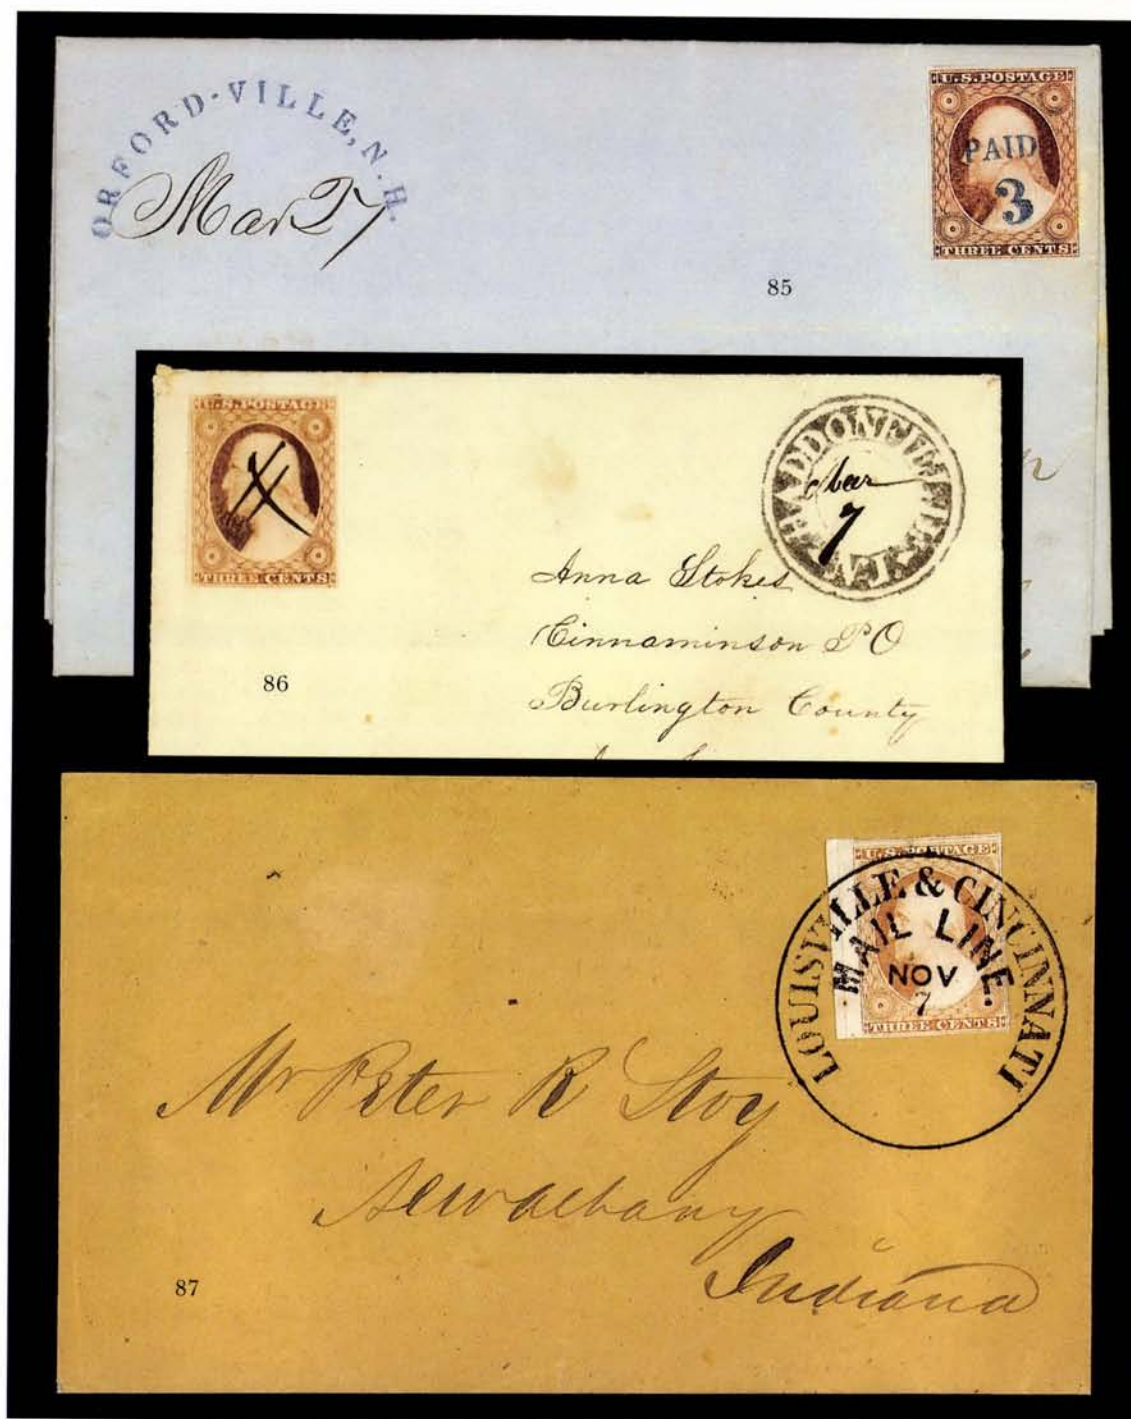 ORFORD-VILLE, N.H.
Mar 27
U.S. POSTAGE
PAID
3
THREE CENTS
85
U.S. POSTAGE
THREE CENTS
HADDONFIELD
N.J.
Mar
7
Anna Stokes
Cinnaminson PO
Burlington County
86
U.S. POSTAGE
LOUISVILLE & CINCINNATI
MAIL LINE.
NOV
7
THREE CENTS
Mr Peter R Stoy
New Albany
Indiana
87